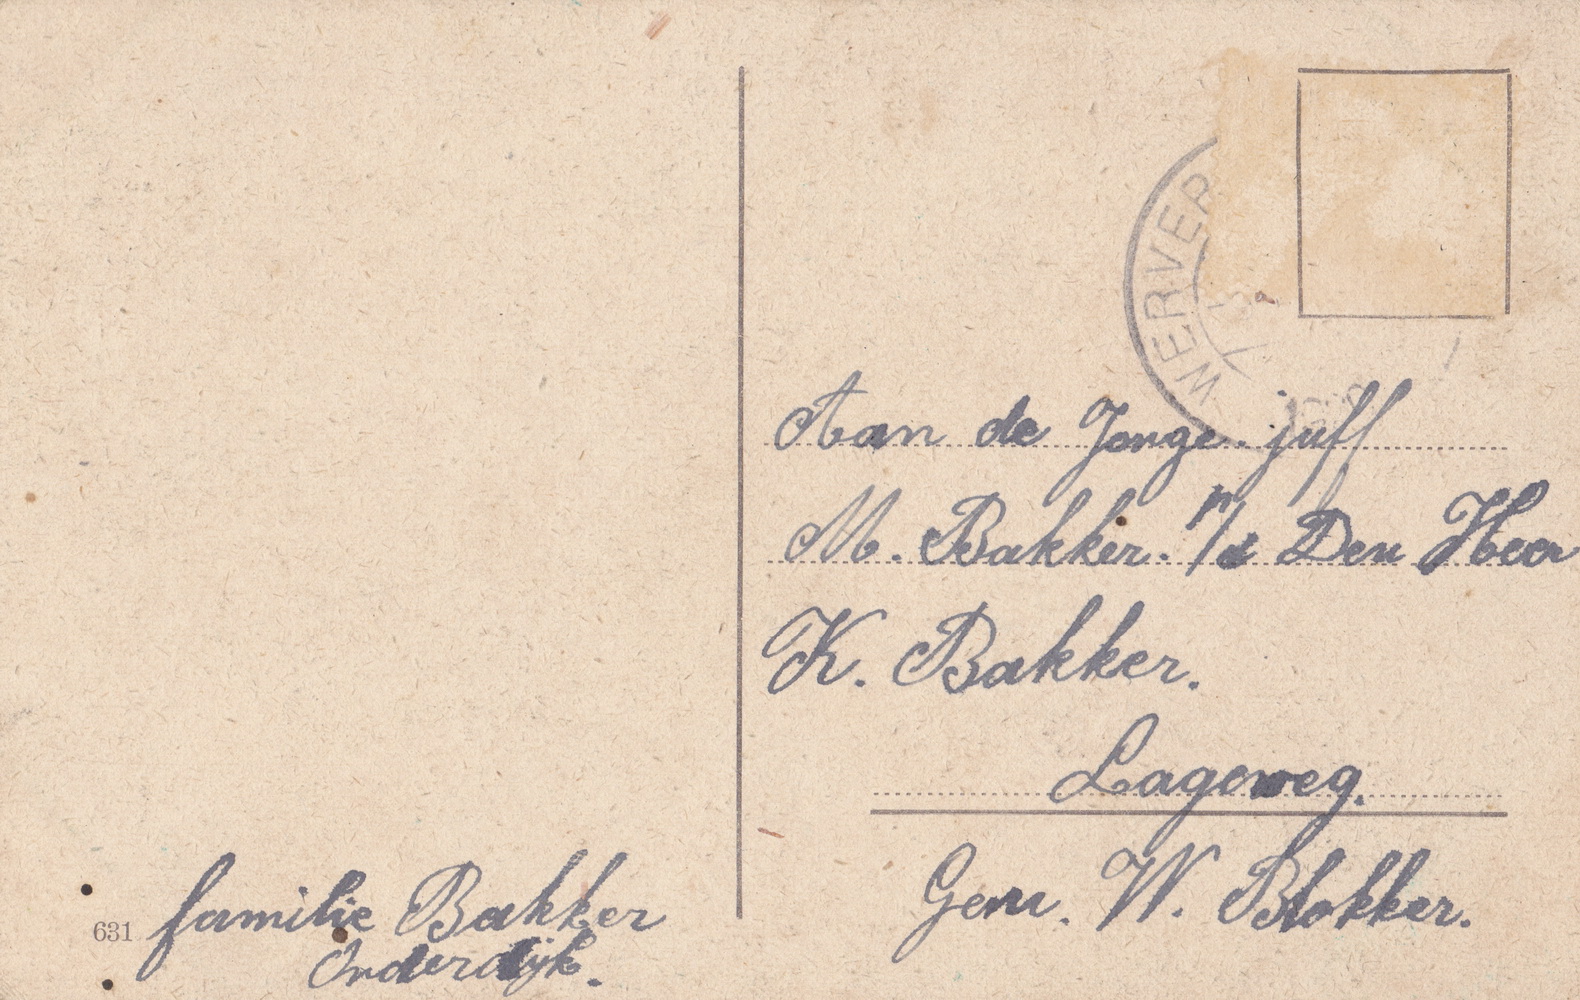 WERVER
Aan de Jonge. juff
M. Bakker. p/a Den Heer
K. Bakker.
Lageweg.
Gem. W. Blokker.
familie Bakker
631
Onderdijk.